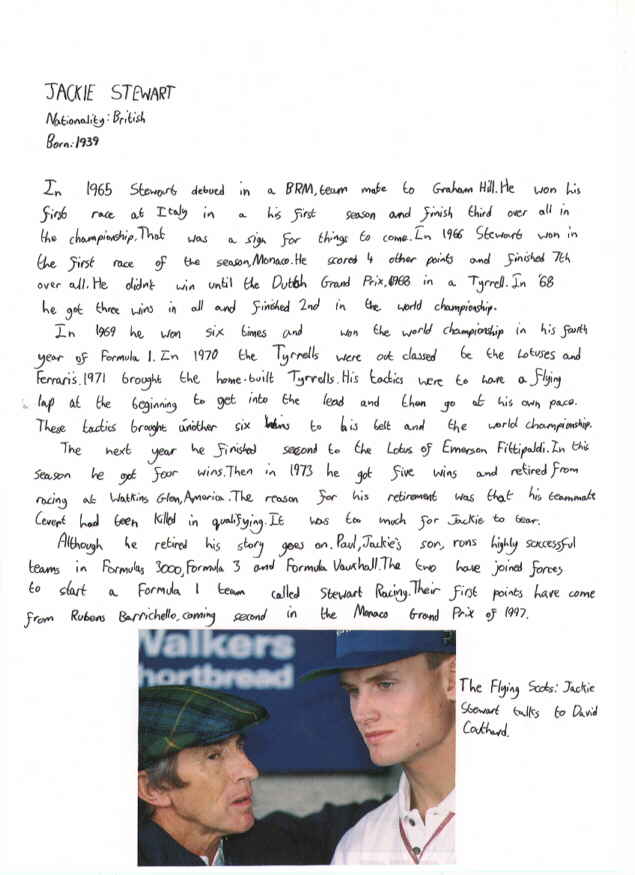 JACKIE STEWART
Nationality: British
Born: 1939
In 1965 Stewart debued in a BRM, team mate to Graham Hill. He won his
first race at Italy in a his first season and finish third over all in
the championship. That was a sign for things to come. In 1966 Stewart won in
the first race of the season, Monaco. He scored 4 other points and finished 7th
over all. He didnt win until the Dutch Grand Prix, 1968 in a Tyrrell. In '68
he got three wins in all and finished 2nd in the world championship.
In 1969 he won six times and won the world championship in his fourth
year of Formula 1. In 1970 the Tyrrells were out classed be the Lotuses and
Ferraris. 1971 brought the home-built Tyrrells. His tactics were to have a flying
lap at the beginning to get into the lead and then go at his own pace.
These tactics brought another six wins to his belt and the world championship.
The next year he finished second to the Lotus of Emerson Fittipaldi. In this
season he got four wins. Then in 1973 he got five wins and retired from
racing at Watkins Glen, America. The reason for his retirement was that his teammate
Cevert had been killed in qualifying. It was too much for Jackie to bear.
Although he retired his story goes on. Paul, Jackie's son, runs highly successful
teams in Formulas 3000, Formula 3 and Formula Vauxhall. The two have joined forces
to start a Formula 1 team called Stewart Racing. Their first points have come
from Rubens Barrichello, coming second in the Monaco Grand Prix of 1997.
Walkers
hortbread
The Flying Scots: Jackie
Stewart talks to David
Coulthard.